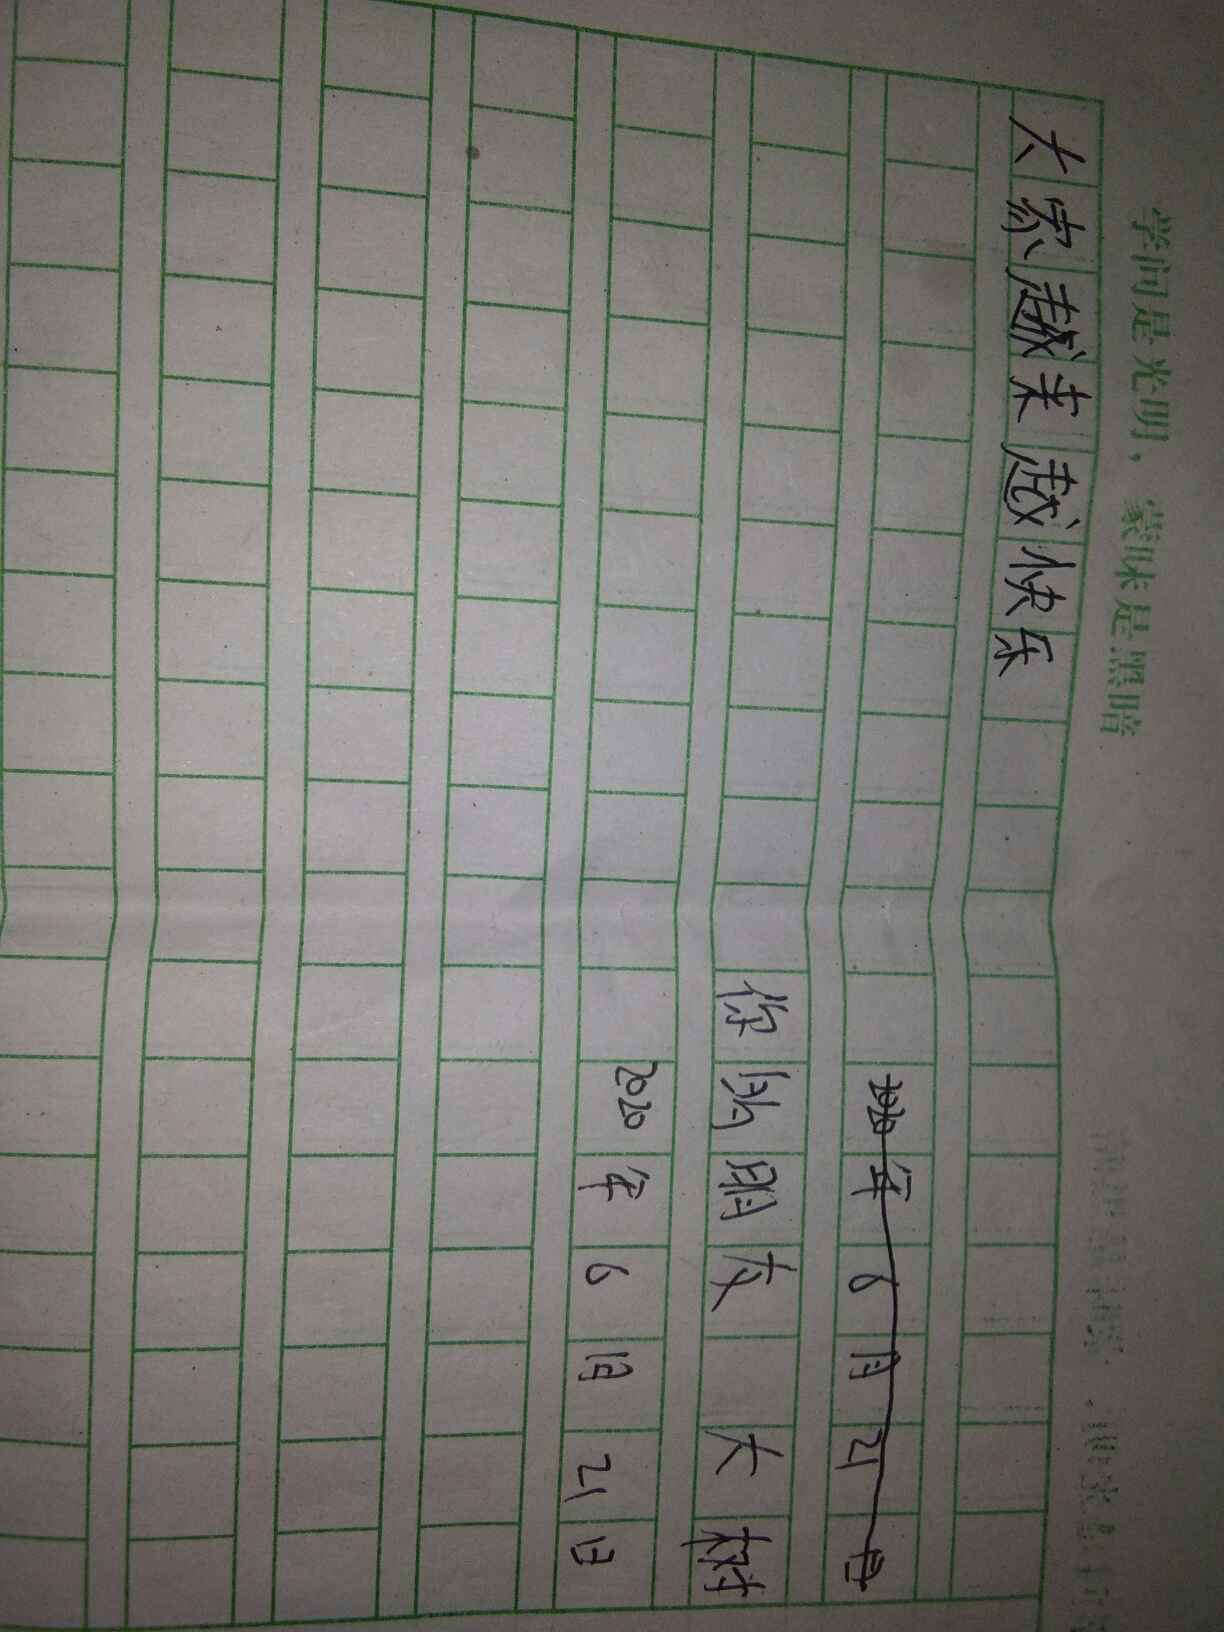 学问是光明，蒙昧是黑暗
大家越来越快乐
2020年6月21日
你的朋友 大树
2020年6月21日